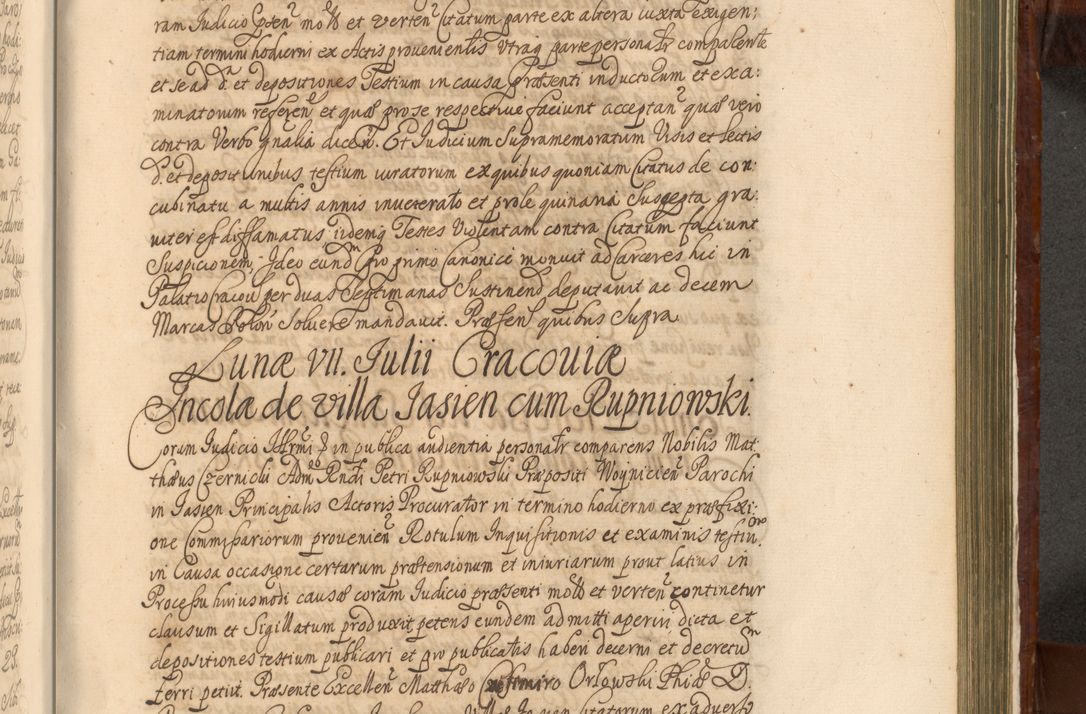 ram Judicio pñten mot et verten Citatum parte ex altera iuxta exigen:
tiam termini hodierni ex Actis provenientis utraq parte personatr comparente
et se ad d. et depositiones Testium in causa præsenti inductorum et exa:
minatorum referen et quæ pro se respective faciunt acceptan quæ vero
contra Verbo gnalia dicen. Et Judicium Supramemoratum Visis et lectis
d. et depositionibus testium iuratorum ex quibus quoniam Citatus de con:
cubinatu a multis annis inveterato et prole quinaria Suscepta gra:
viter est diffamatus iidemq Testes Violentam contra Citatum faciunt
Suspicionem Ideo eund pro primo Canonice monuit ad Carceres hic in
Palatio Cracou per duas Septimanas Sustinend deputavit ac decem
Marcas Polon Solvere mandavit. Præsen quibus Supra
Lunæ VII. Julii Cracoviæ
Incola de villa Jasien cum Rupniowski.
Coram Judicio in publica audientia personatr comparens Nobilis Mat:
thæus Czernicki Adm Rndi Petri Rupniowski Præpositi Woynicien Parochi
in Jasien Principalis Actoris Procurator in termino hodierno ex præfixi:
one Commissariorum provenien Rotulum Inquisitionis et examinis testiu
in Causa occasione certarum prætensionum et iniuriarum prout latius in
Processu huiusmodi causæ coram Judicio præsenti mot et verten continetur
clausum et Sigillatum produxit petens eundem admitti aperiri dicta et
depositiones testium publicari et pro publicatis haben decerni et decretu
ferri petiit. Præsente Excellen Matthæo Casimiro Orlowski Phiæ D.